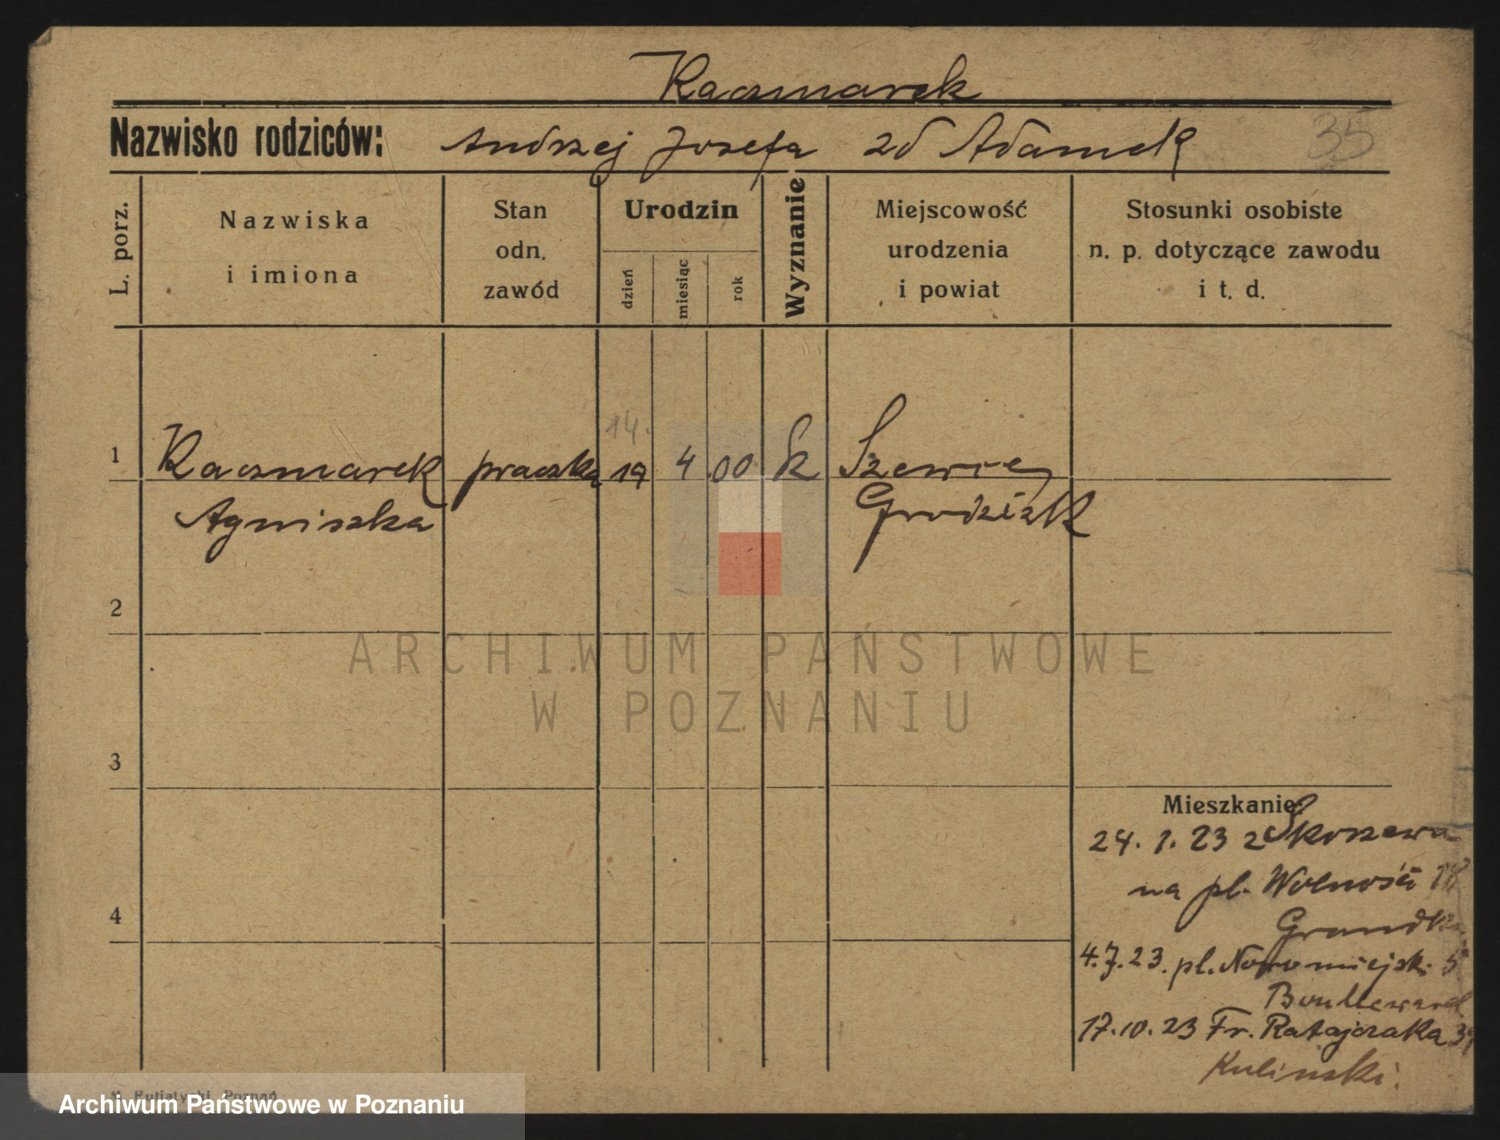 Kaczmarek
Nazwisko rodziców: Andrzej Józefa zd Adamek 35
L. porz.
Nazwiska
i imiona
Stan
odn.
zawód
Urodzin
dzień
miesiąc
rok
Wyznanie
Miejscowość
urodzenia
i powiat
Stosunki osobiste
n. p. dotyczące zawodu
i t. d.
14.
1 Kaczmarek praczka 19 4 00 k Szewce
Agniszka Grodzisk
2
ARCHIWUM PAŃSTWOWE
W POZNANIU
3
Mieszkanie:
24. 1. 23 z Skorzewa
na pl. Wolności 18
4
4.7.23. pl. Nowomiejski 5
17.10.23 Fr. Ratajczaka
Kulinski.
Poznań
Archiwum Państwowe w Poznaniu